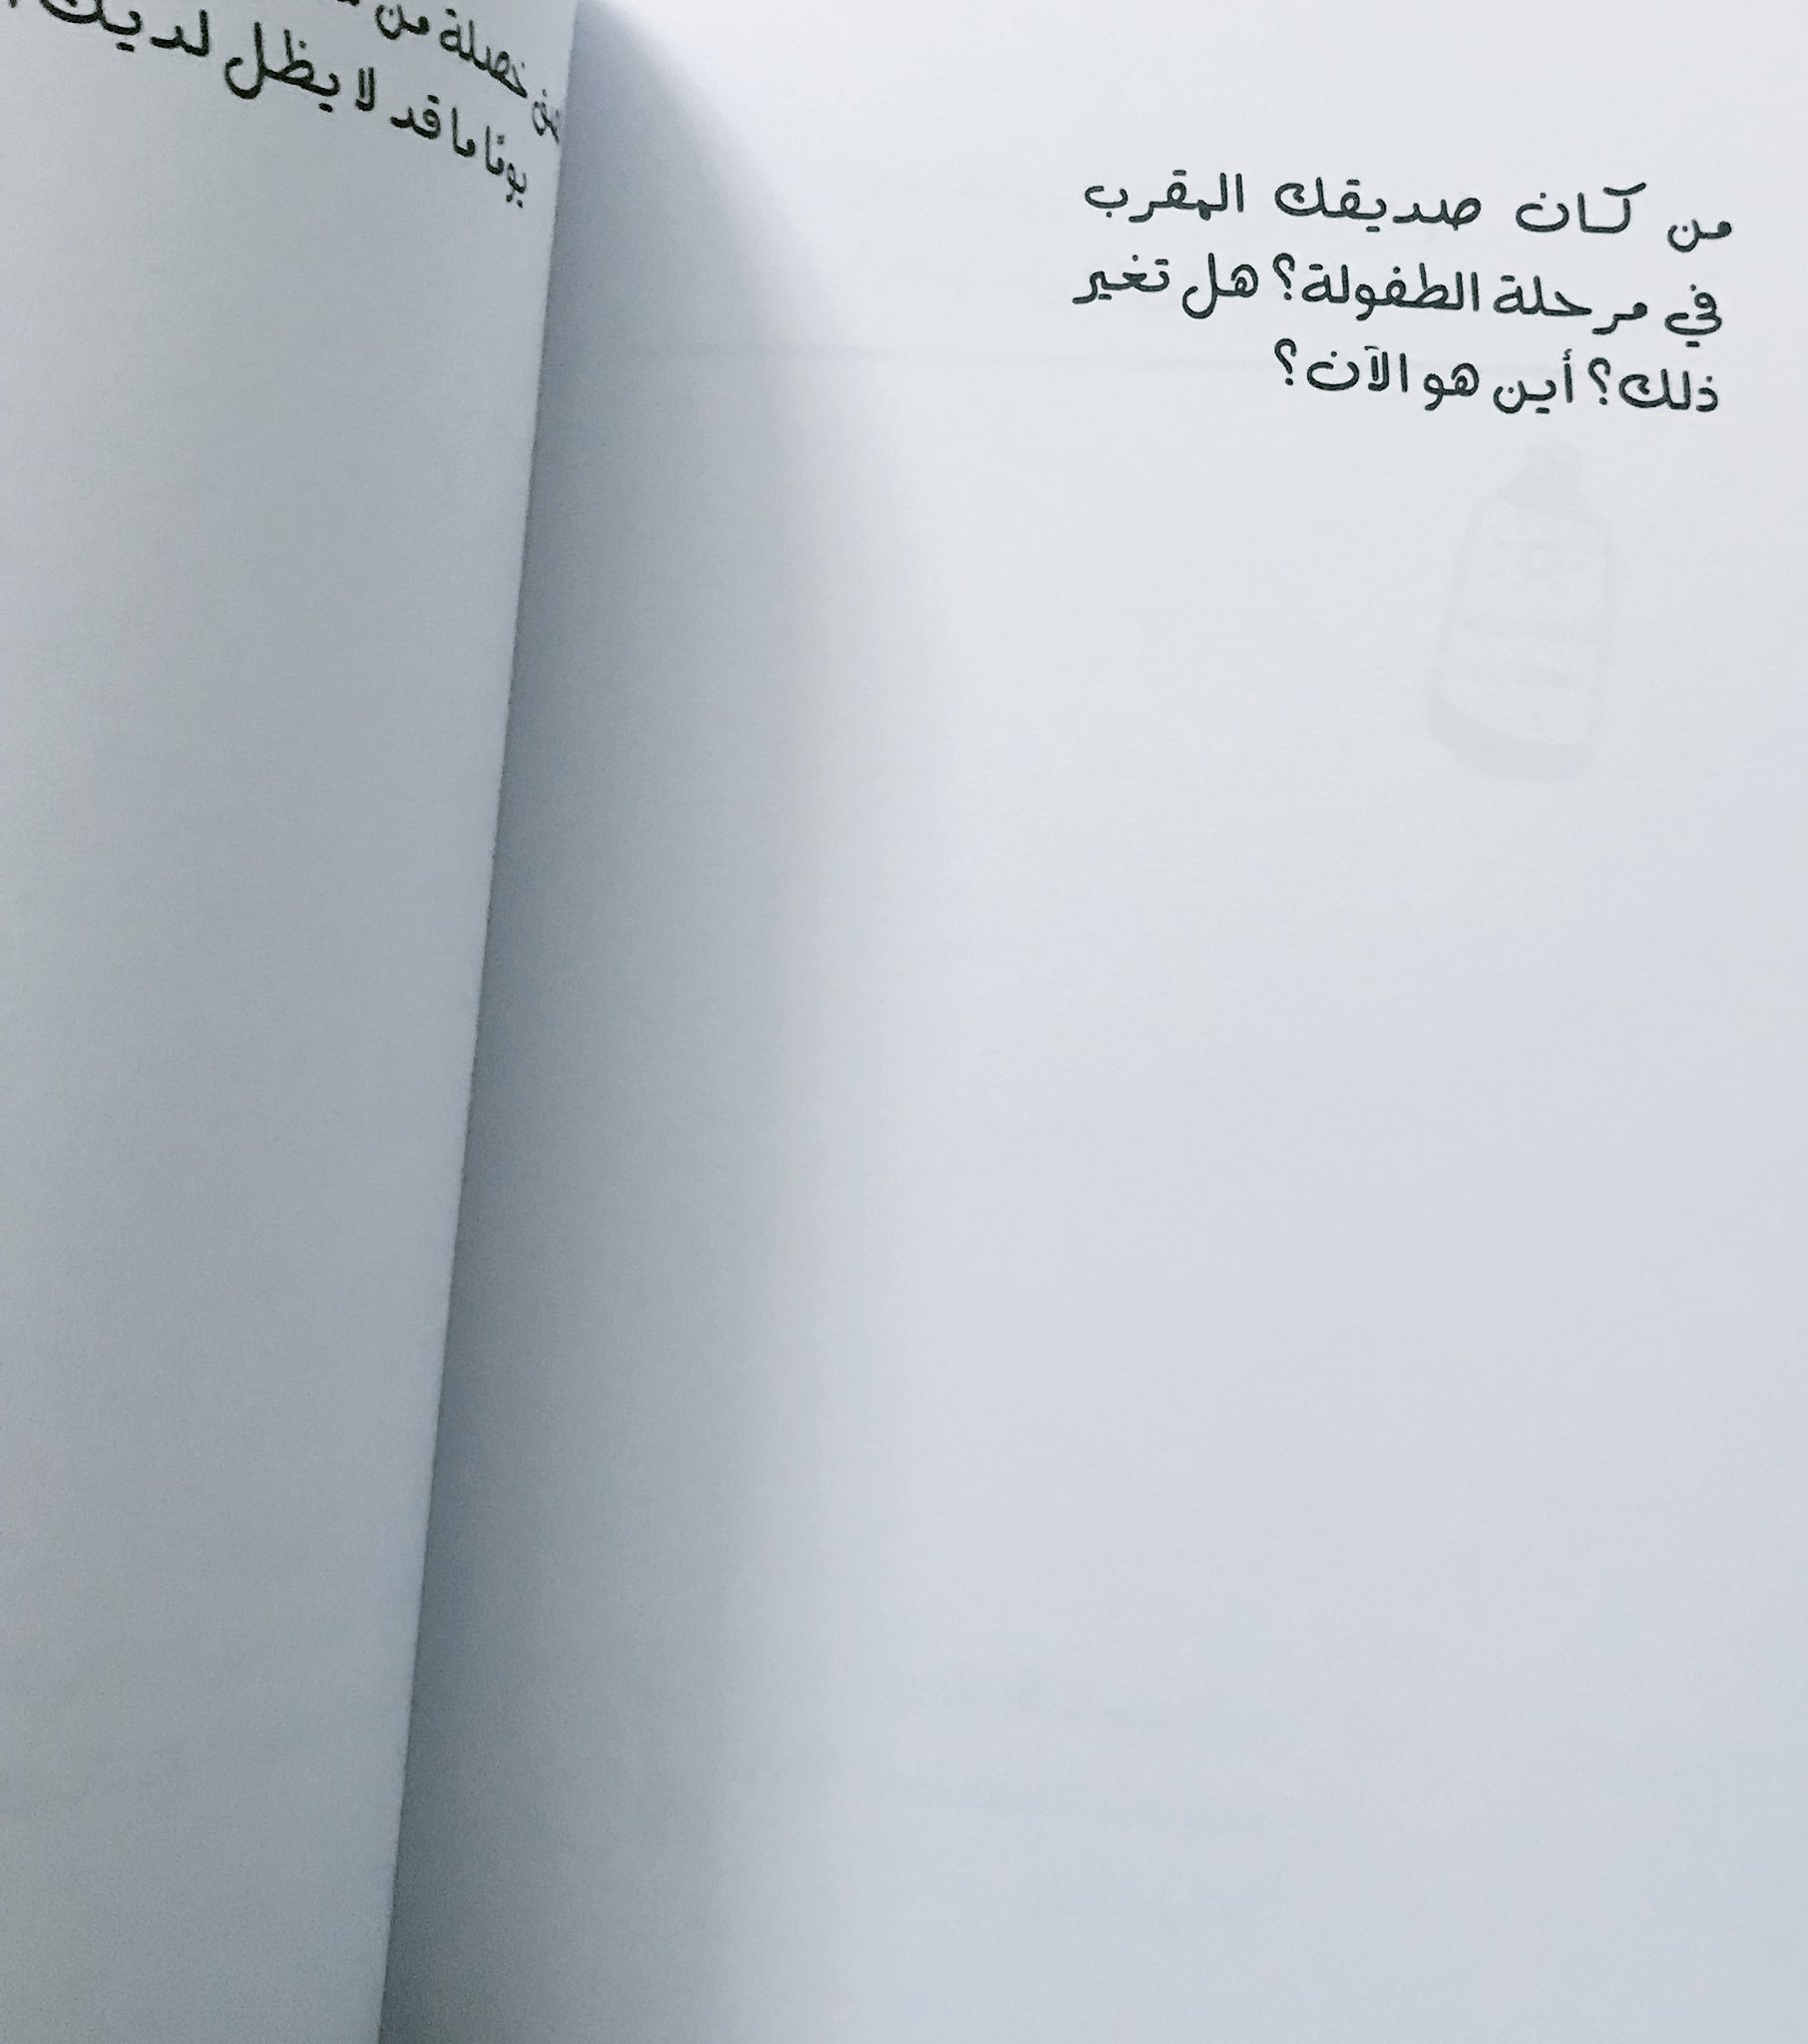 من كان صديقك المقرب
في مرحلة الطفولة؟ هل تغير
ذلك؟ أين هو الآن؟
خصلة من
يومًا ما قد لا يظل لديك